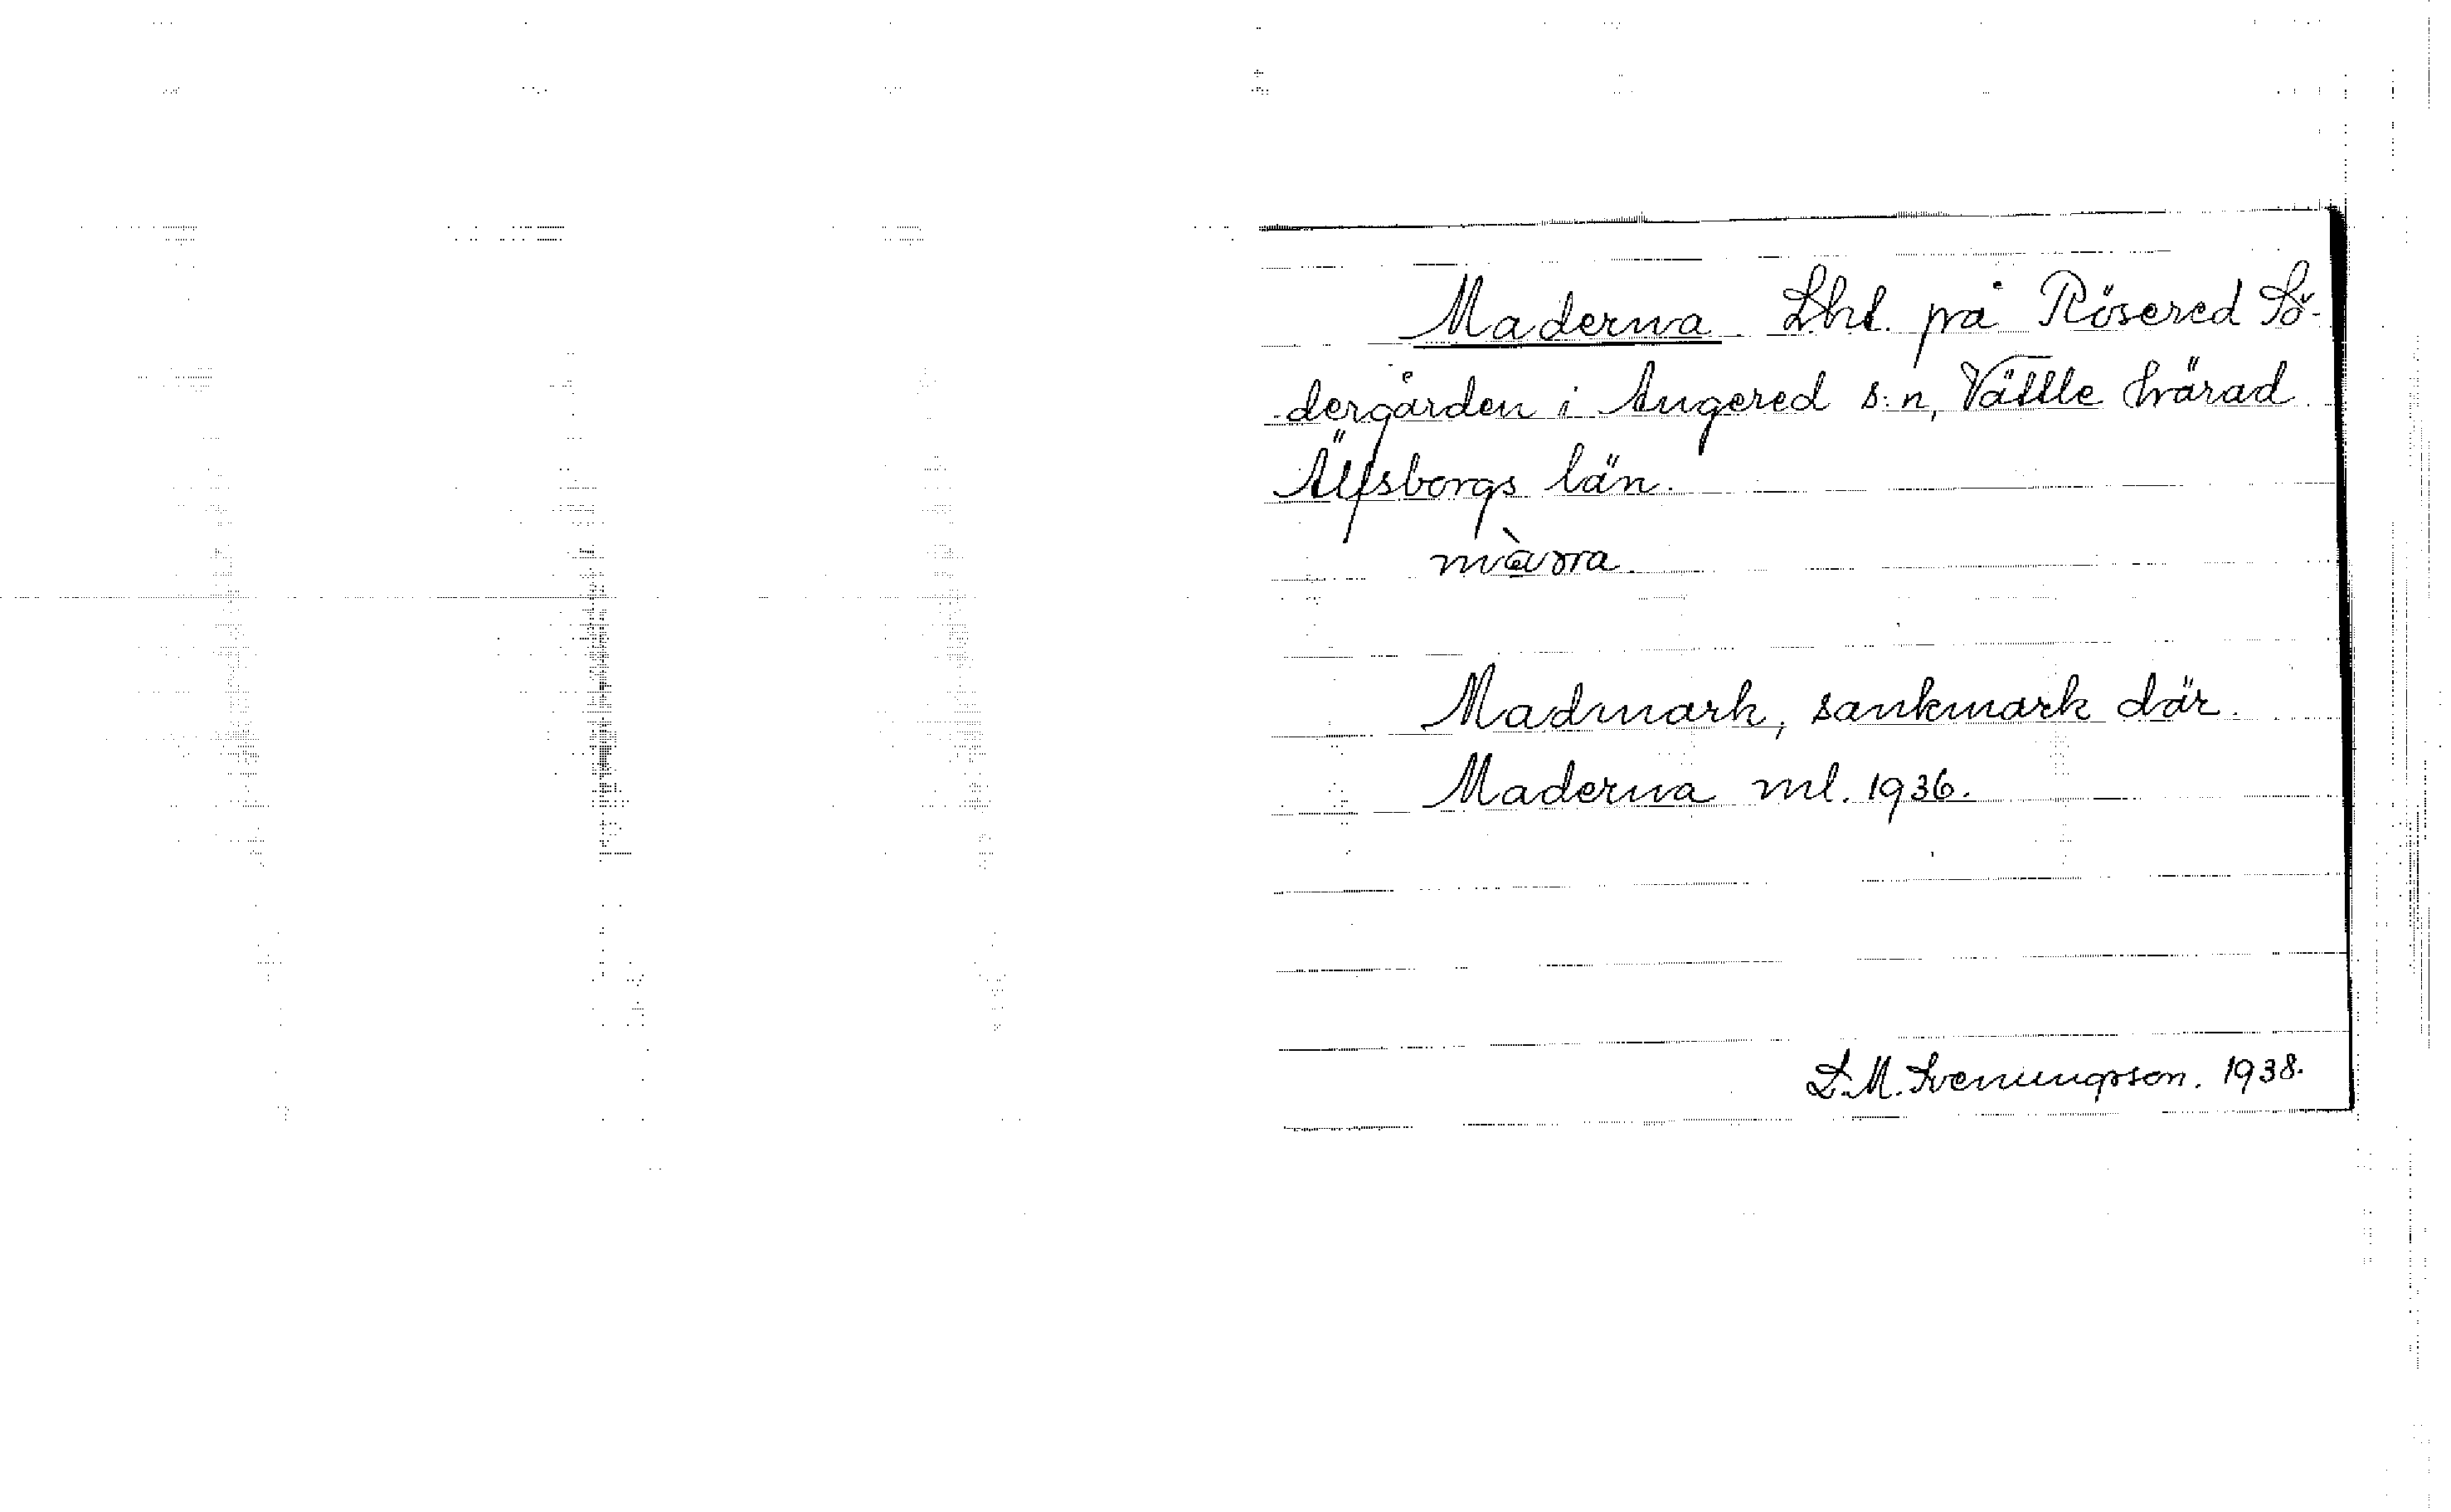 Maderna Lht. på Rösered Sö-
dergården i Angered s:n, Vättle härad
Älfsborgs län.
Madmark, sankmark där.
Maderna ml. 1936.
D.M. Sveningsson. 1938.